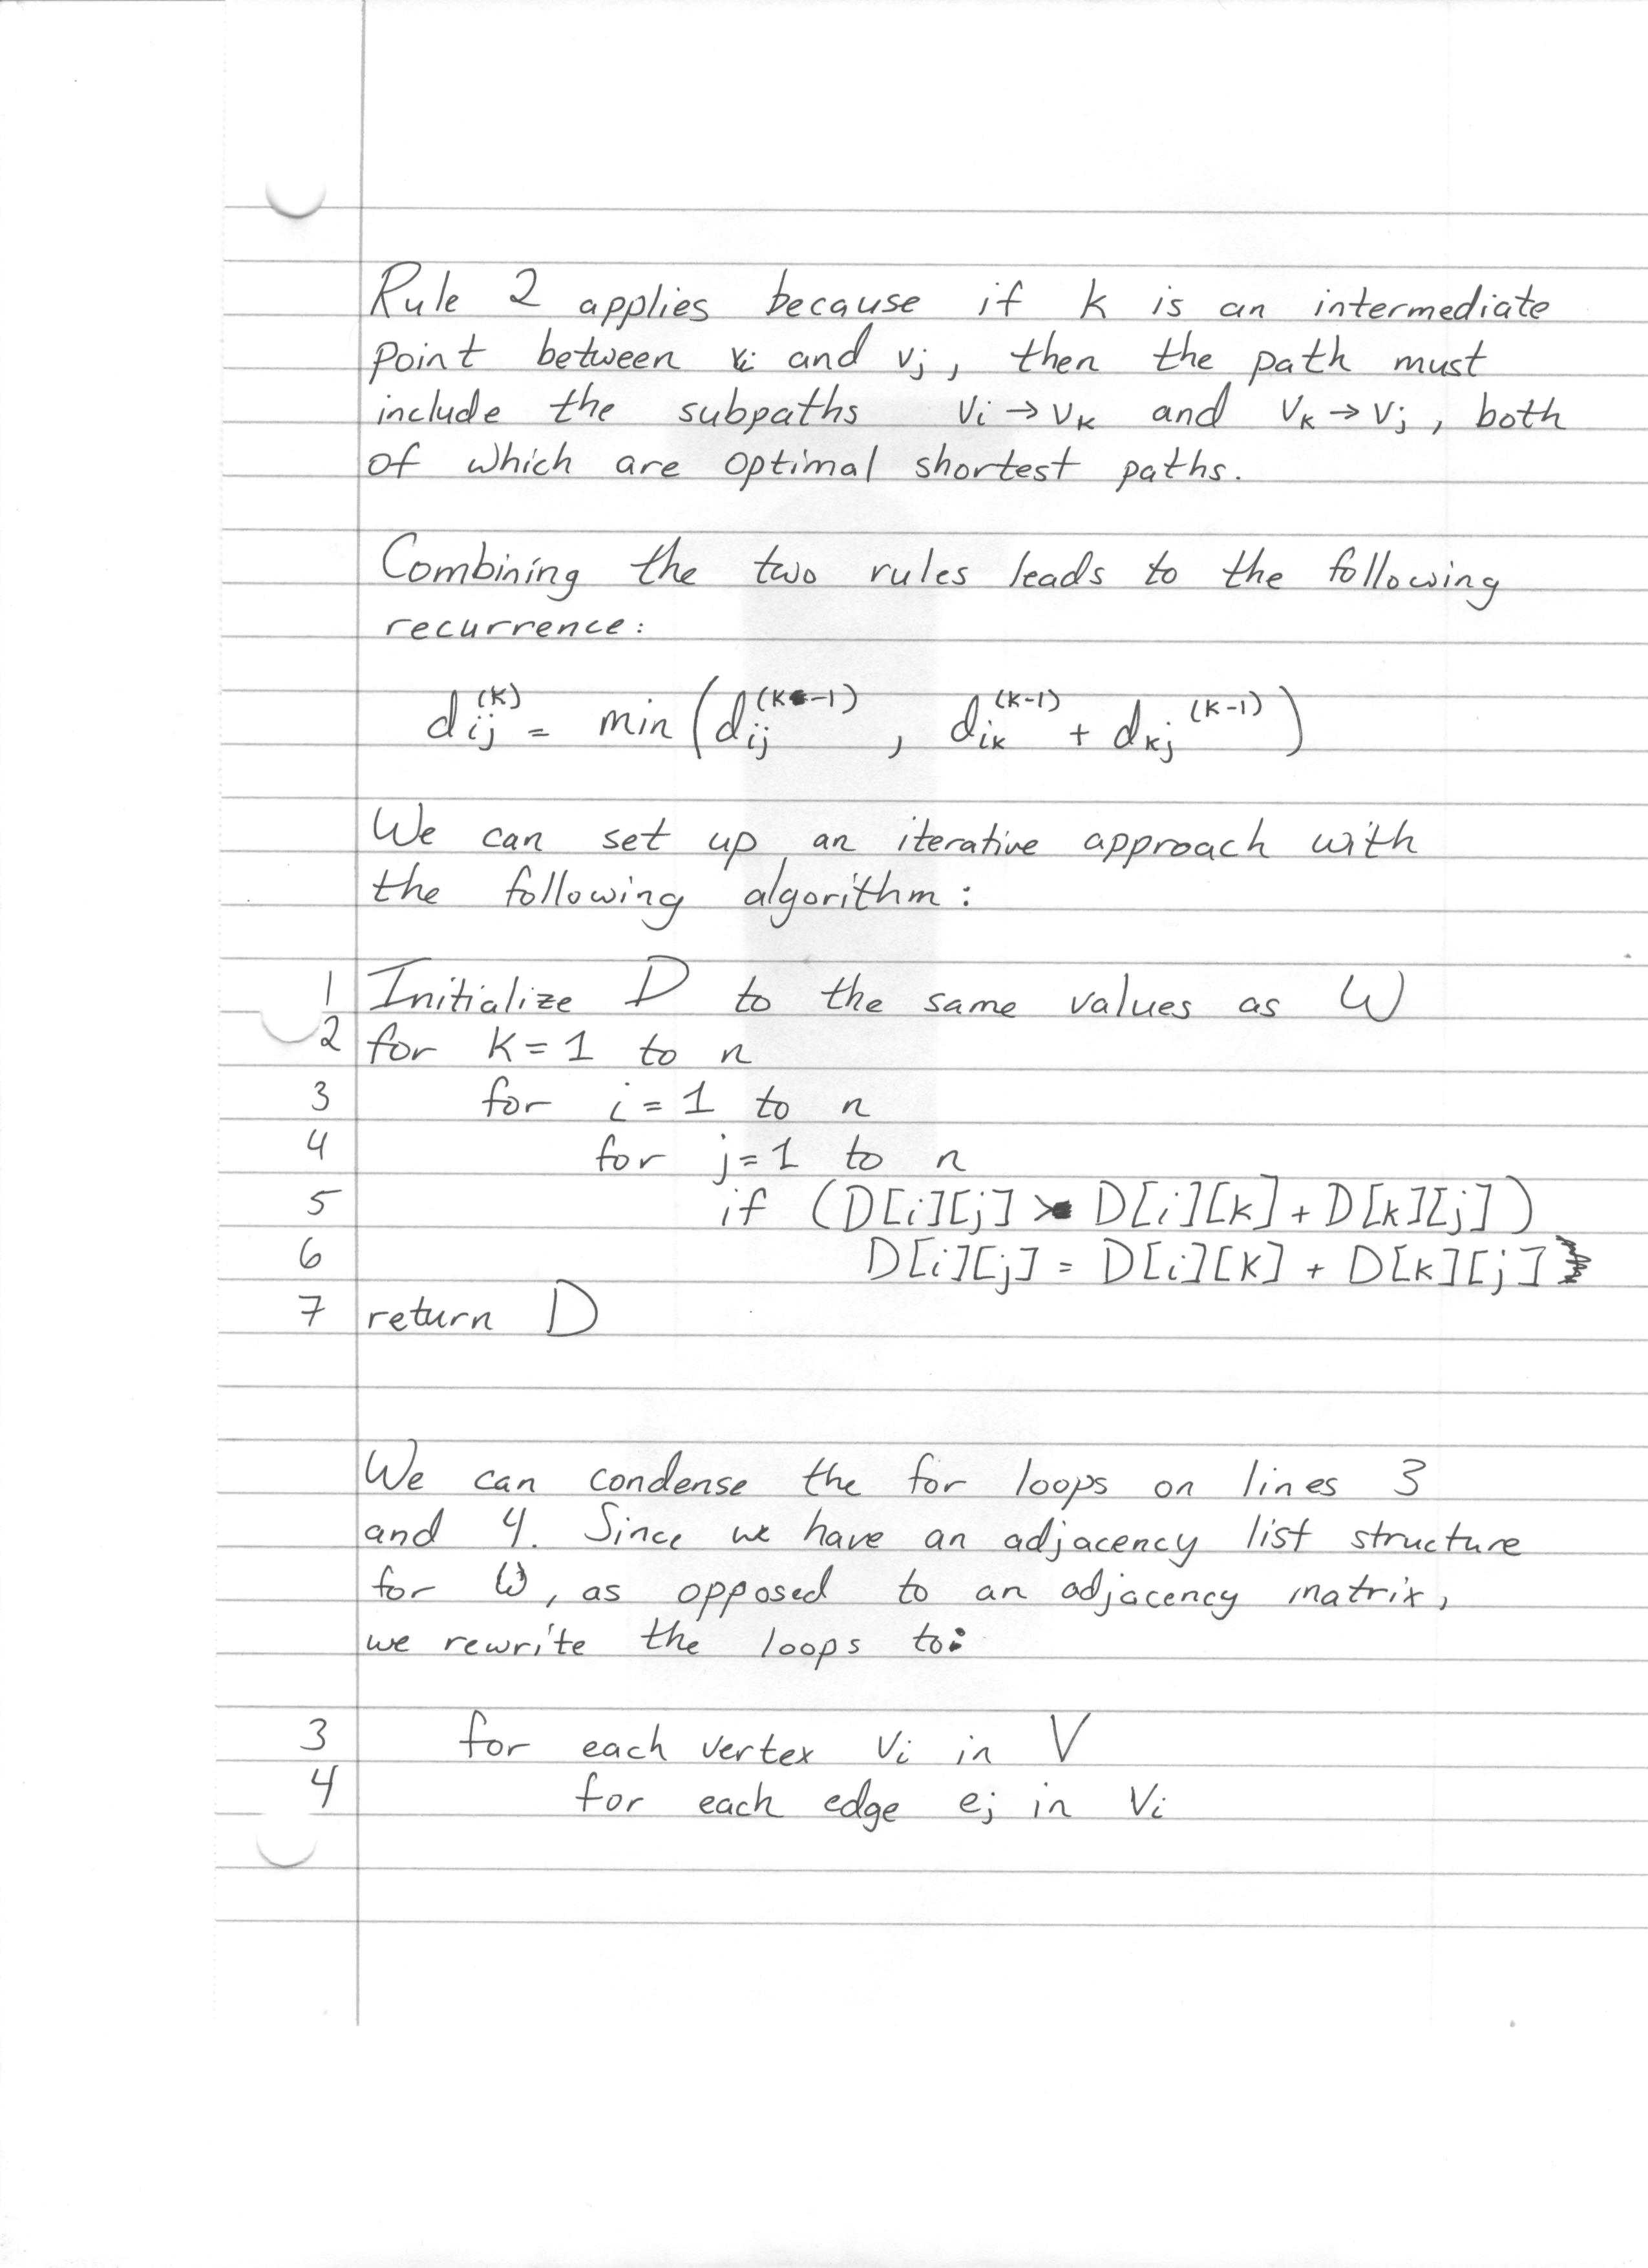 Rule 2 applies because if k is an intermediate
point between vi and vj, then the path must
include the subpaths vi → vk and vk → vj, both
of which are optimal shortest paths.
Combining the two rules leads to the following
recurrence:
dij^(k) = min(dij^(k-1), dik^(k-1) + dkj^(k-1))
We can set up an iterative approach with
the following algorithm:
1 Initialize D to the same values as W
2 for k=1 to n
3 for i=1 to n
4 for j=1 to n
5 if (D[i][j] > D[i][k] + D[k][j])
6 D[i][j] = D[i][k] + D[k][j]
7 return D
We can condense the for loops on lines 3
and 4. Since we have an adjacency list structure
for W, as opposed to an adjacency matrix,
we rewrite the loops to:
3 for each vertex vi in V
4 for each edge ej in vi